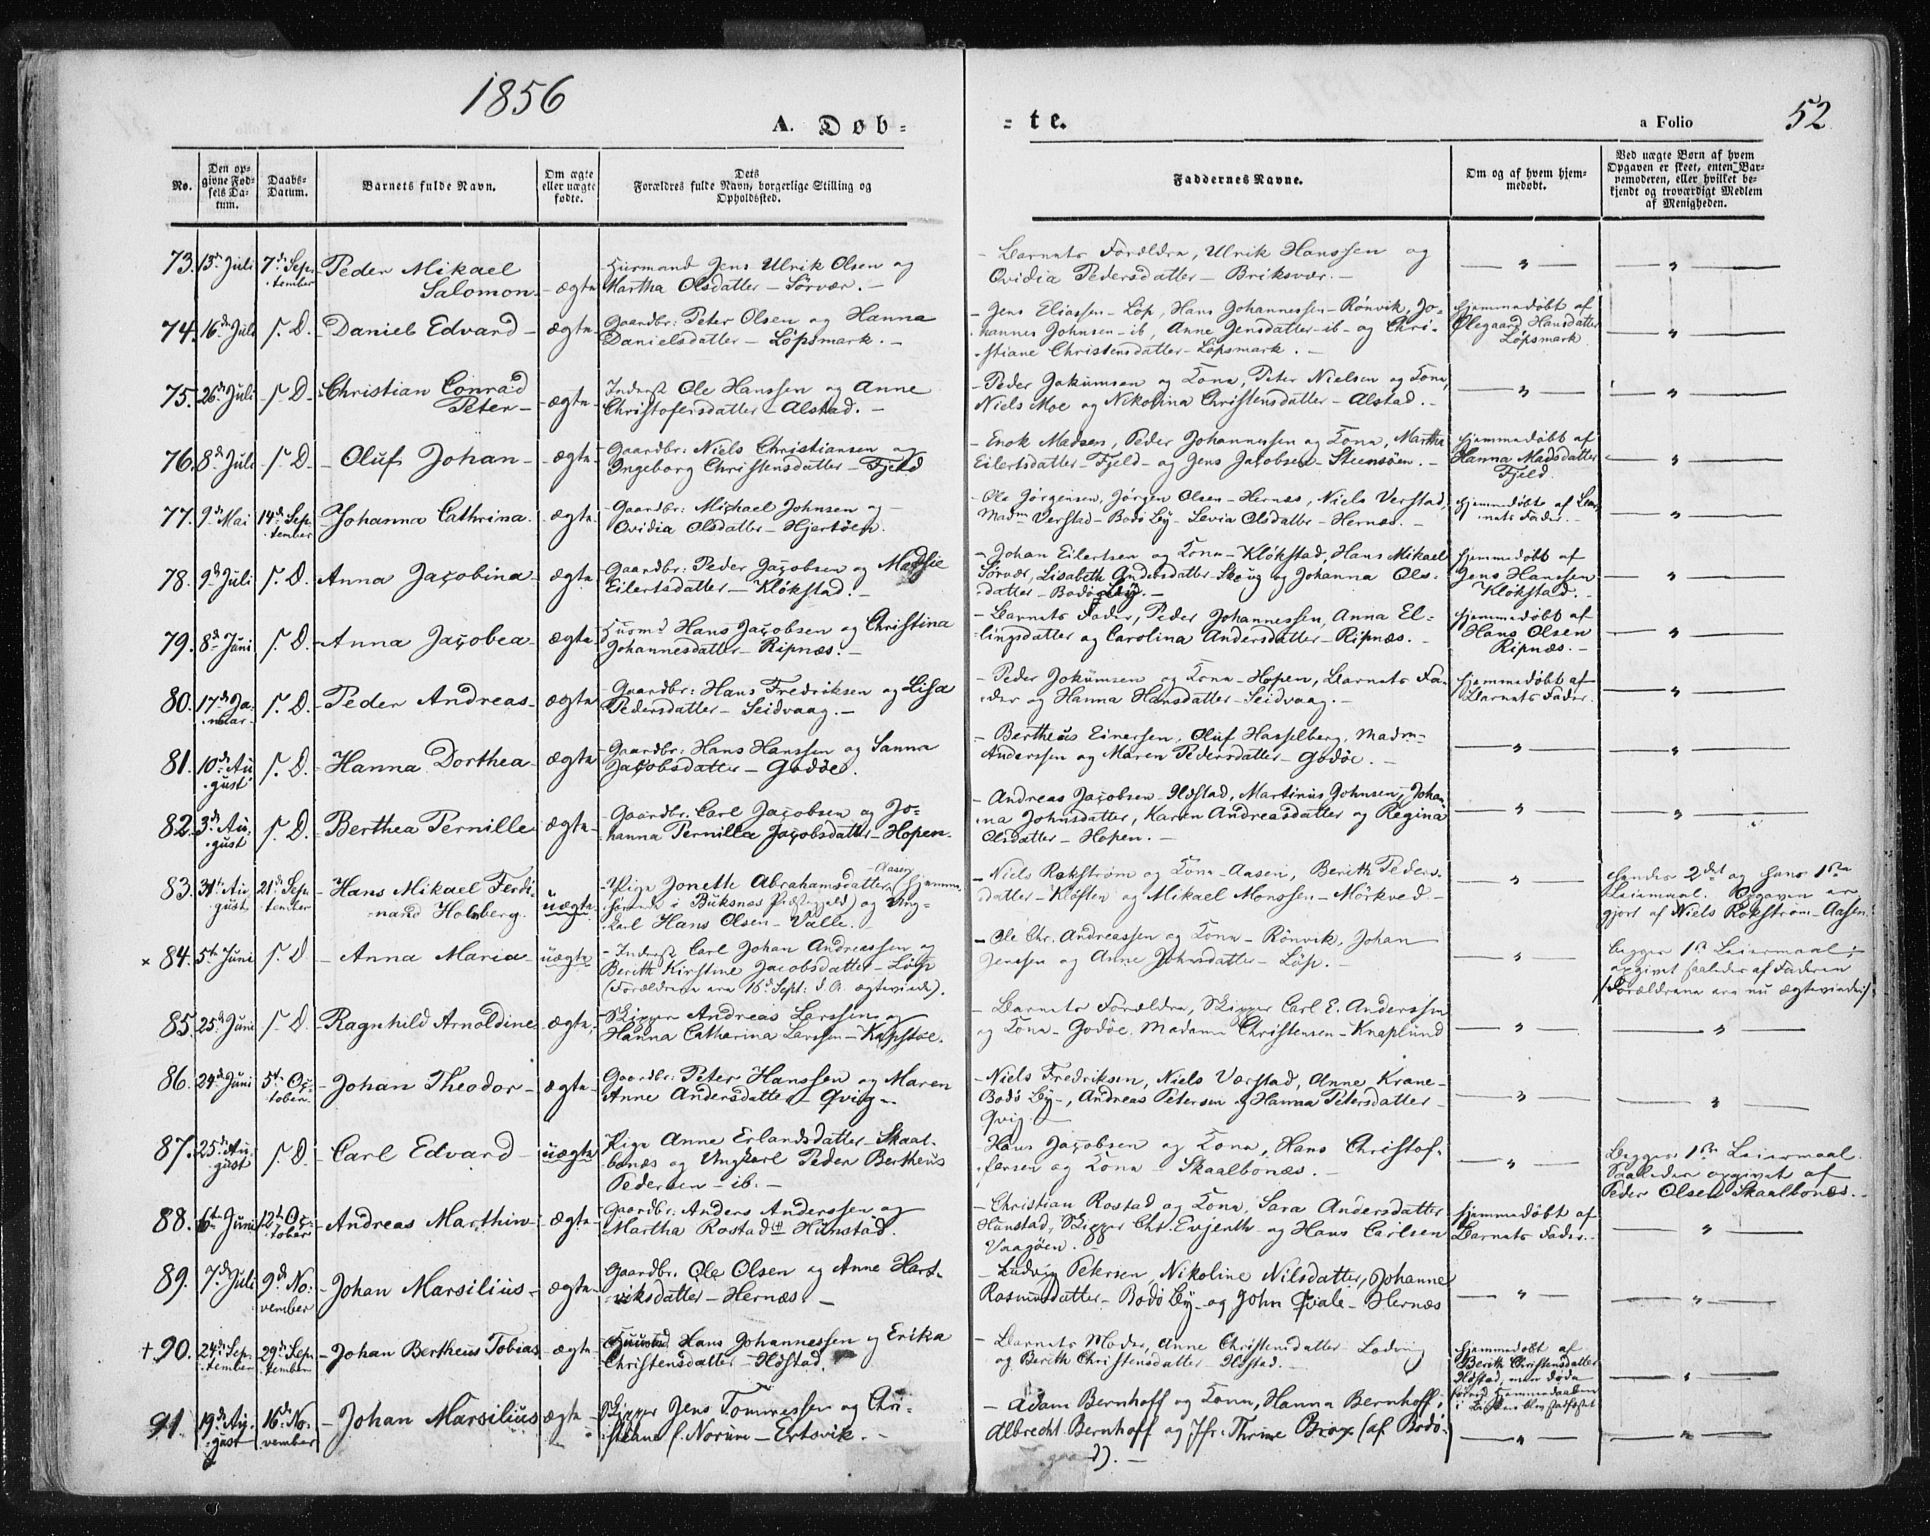 1856
A. Døb-
-te.
a Folio
52
No.
Den opgivne Fødsels Datum.
Daabs-Datum.
Barnets fulde Navn.
Om ægte eller uægte fødte.
Dets Forældres fulde Navn, borgerlige Stilling og Opholdssted.
Faddernes Navne.
Om og af hvem hjemmedøbt.
Ved uægte Børn af hvem Opgaven er skeet, enten Barnemoderen, eller hvilket bekjendt og troværdigt Medlem af Menigheden.
73. 13de Juli 7de September Peder Mikael Salomon - ægte
Huusmand Jens Ulrik Olsen og
Martha Olsdatter - Sörvær. -
- Barnets Forældre, Ulrik Hanssen og
Ovidia Pedersdatter - Briksvær. -
74. 16de Juli s. D. Daniel Edvard - ægte
Gaardbr: Peter Olsen og Hanna
Danielsdatter - Löpsmark. -
- Jens Eliassen - Löp, Hans Johannessen - Rönvik, Jo-
hannes Johnsen - ib, Anne Jensdatter - ib - og Chri-
stiane Christensdatter - Löpsmark. -
Hjemmedøbt af
Olegaard Hansdatter
Löpsmark
75. 26de Juli s. D. Christian Conrad Peter - ægte
Inderst Ole Hanssen og Anne
Christofersdatter - Alstad. -
- Peder Jokumsen og Kone, Peter Nielsen og Kone,
Niels Moe og Nikolina Christensdatter - Alstad. -
76. 8de Juli s. D. - Oluf Johan - ægte
Gaardbr: Niels Christiansen og
Ingeborg Christensdatter - Fjeld
- Enok Madsen, Peder Johannessen og Kone, Martha
Eilertsdatter - Fjeld - og Jens Jacobsen - Steensöen. -
Hjemmedøbt af
Hanna Madsdatter
Fjeld.
77. 9de Mai 14de September Johanna Cathrina - ægte
Gaardbr: Michael Johnsen og
Ovidia Olsdatter - Hjertöen.
- Ole Jörgensen, Jörgen Olsen - Hernæs, Niels Verstad,
Madm Verstad - Bodö By - Levia Olsdatter - Hernæs. -
Hjemmedøbt af Bar-
nets Fader. -
78. 9de Juli s. D. Anna Jacobina - ægte
Gaardbr: Peder Jacobsen og
Eilertsdatter - Klökstad. -
- Johan Eilertsen og Kone - Klökstad, Hans Mikael
Sörvær, Lisabeth Andersdatter - Skoug og Johanna Ols-
datter - Bodö By. -
Hjemmedøbt af
Jens Hanssen
Klökstad. -
79. 8de Juni s. D. - Anna Jacobea - ægte
Husmd Hans Jacobsen og Christina
Johannesdatter - Ripnæs. -
- Barnets Fader, Peder Johannessen, Anna El-
lingsdatter og Carolina Andersdatter - Ripnæs. -
Hjemmedøbt af
Hans Olsen
Ripnæs. -
80. 17de Januar s. D. - Peder Andreas - ægte
Gaardbr: Hans Fredriksen og Lisa
Pedersdatter - Seidvaag. -
- Peder Jokumsen og Kone - Hopen, Barnets Fa-
der og Hanna Hansdatter - Seidvaag. -
Hjemmedøbt af
Barnets Fader.
81. 10de August s. D. - Hanna Dorthea - ægte
Gaardbr: Hans Hanssen og Sanna
Jacobsdatter - Godöe.
- Bertheus Einersen, Oluf Hasselberg, Madm
Anderssen og Maren Pedersdatter - Godöe. -
82. 3de August s. D. Berthea Pernille ægte
- Gaardbr: Carl Jacobsen og Jo-
hanna Pernilla Jacobsdatter - Hopen.
- Andreas Jacobsen - Höstad, Martinus Johnsen, Johan-
na Johnsdatter, Karen Andreasdatter og Regina
Olsdatter - Hopen. -
83. 31te August 21de September - Hans Mikael Ferdinand Holsberg. uægte
- Pige Jonette Abrahamsdatter Aasen, (hjemme-
hørende i Buksnæs Præstegjeld) og Ung-
karl Hans Olsen - Valle. -
- Niels Rokström og Kone - Aasen, Berith Peders-
datter - Klöften og Mikael Monssen - Mörkved -
Hendes 2det og hans 1ste
Leiermaal. Opgaven er
gjort af Niels Rokström - Aasen.
× 84. 5te Juni s. D. - Anna Maria - uægte
- Inderst Carl Johan Andreassen og
Berith Kirstine Jacobsdatter - Löp
(Forældrene ere 16de Sept. d. A. ægteviede).
- Ole Chr. Andreassen og Kone - Rönvik, Johan
Jenssen og Anne Johnsdatter - Löp. -
Begges 1ste Leiermaal;
opgivet saaledes af Faderen
(Forældrene ere nu ægteviede).
85. 25de Juni s. D. - Ragnhild Arnoldine ægte
Skipper Andreas Larssen og
Hanna Catharina Larssen - Kapstoe.
- Barnets Forældre, Skipper Carl E. Anderssen
og Kone - Godöe, Madame Christensen - Knaplund
86. 24de Juni 5te October - Johan Theodor - ægte
Gaardbr: Peter Hanssen og Maren
Anne Andersdatter - Qvig -
- Niels Fredriksen, Niels Værstad, Anne Krane -
Bodö By -, Andreas Petersen og Hanna Petersdatter -
Qvig
87. 25de August s. D. - Carl Edvard - uægte
Pige Anne Erlandsdatter - Skaal-
bonæs og Ungkarl Peder Bertheus
Pedersen - ib. -
Hans Jacobsen og Kone, Hans Christof-
fersen og Kone - Skaalbonæs. -
Begges 1ste Leiermaal.
Saaledes opgivet af
Peder Olsen Skaalbonæs. -
88. 6te Juni 12te October - Andreas Marthin - ægte
Gaardbr: Anders Anderssen og
Martha Rostad - Hunstad.
- Christian Rostad og Kone, Sara Andersdatter
Hunstad, Skipper Chr. Evjenth og Hans Carlsen
Vaagöen. -
Hjemmedøbt af
Barnets Fader. -
89. 7de Juli 9de November - Johan Marsilius - ægte
Gaardbr. Ole Olsen og Anne Hart-
viksdatter - Hernæs. -
- Ludvig Petersen, Nikoline Nilsdatter, Johanne
Rasmusdatter - Bodö By - og John Qvale - Hernæs
+ 90. 24de September 29de September - Johan Bertheus Tobias ægte
Hans Johannessen og Erika
Christensdatter - Höstad.
- Barnets Moder, Anne Christensdatter - Löding
og Berith Christensdatter - Höstad. -
Hjemmedøbt af
Berith Christensdatter
Höstad, men døde
førend Hjemmedaaben
i Kirken blev stadfæstet
91. 19de August 16de November - Johan Marsilius ægte
Skipper Jens Tommessen og Chri-
stiane f. Norum - Ertsvik. -
- Adam Bernhoff og Kone, Hanna Bernhoff,
Albrecht Bernhoff og Jfr. Thrine Brox (af Bodö-
gaard). -